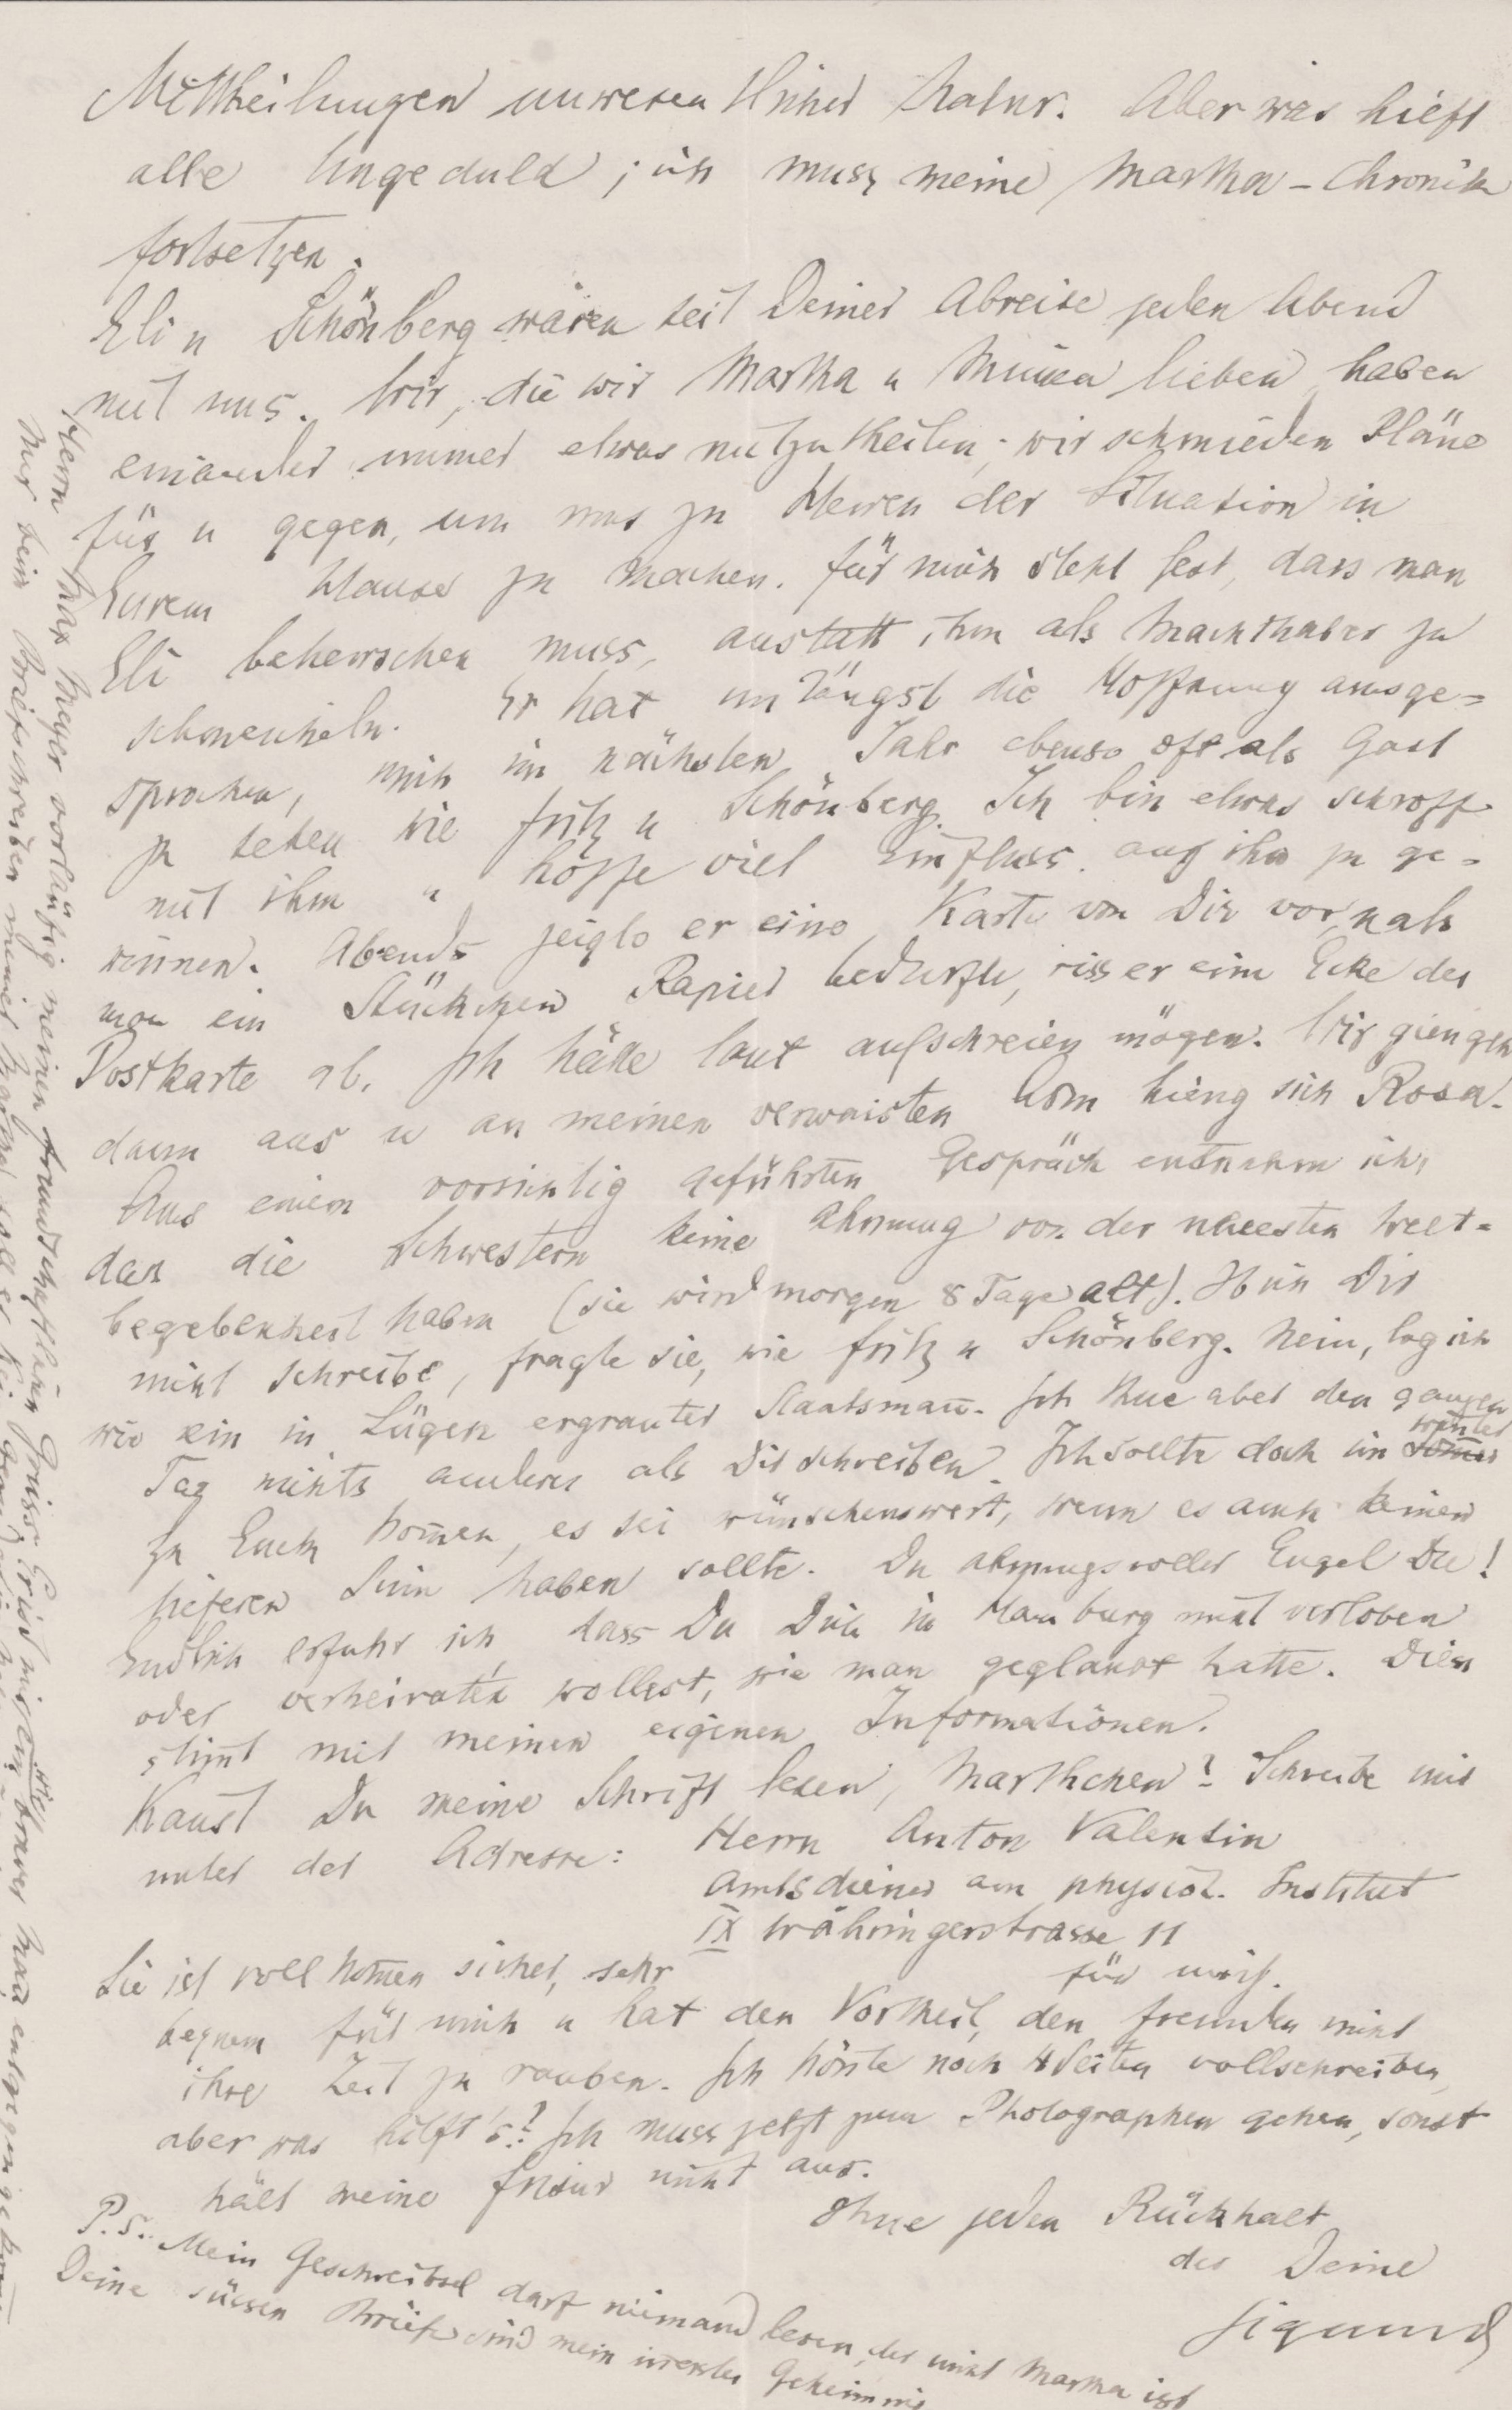 Mittheilungen unwesentlicher Natur. Aber was hilft
alle Ungeduld; ich muss meine Martha-Chronik
fortsetzen.
Eli u Schönberg waren seit Deiner Abreise jeden Abend
mit uns. Wir, die wir Martha u Minna lieben, haben
einander immer etwas mitzutheilen, wir schmieden Pläne
für u gegen, um uns zu Herren der Situation in
Eurem Hause zu machen. Für mich steht fest, dass man
Eli beherrschen muss, anstatt ihm als Machthaber zu
schmeicheln. Er hat unlängst die Hoffnung ausge=
sprochen, mich im nächsten Jahr ebenso oft als Gast
zu sehen wie Fritz u Schönberg. Ich bin etwas schroff
mit ihm u hoffe viel Einfluss auf ihn zu ge=
winnen. Abends zeigte er eine Karte von Dir vor, u als
man ein Stückchen Papier bedurfte, riss er eine Ecke der
Postkarte ab. Ich hätte laut aufschreien mögen. Wir giengen
dann aus u an meinen verwaisten Arm hieng sich Rosa.
Aus einem vorsichtig geführten Gespräch entnahm ich,
dass die Schwestern keine Ahnung von der neuesten Welt=
begebenheit haben (sie wird morgen 8 Tage alt). Ob ich Dir
nicht schreibe, fragte sie, wie Fritz u Schönberg. Nein, log ich
wie ein in Lügen ergrauter Staatsmañ. Ich thue aber den ganzen
Tag nichts anderes als Dir schreiben. Ich sollte doch im Winter
zu Euch kom̄en, es sei wünschenswert, wenn es auch keinen
tieferen Sinn haben sollte. Du ahnungsvoller Engel Du!
Endlich erfuhr ich, dass Du Dich in Hamburg nicht verloben
oder verheiraten wollest, wie man geglaubt hatte. Dies
stim̄t mit meinen eigenen Informationen.
Kañst Du meine Schrift lesen, Marthchen? Schreibe mir
unter der Adresse: Herrn Anton Valentin
Amtsdiener am physiol. Institut
IX Währingerstrasse 11
für mich.
Sie ist vollkom̄en sicher, sehr
bequem für mich u hat den Vortheil, den Freunden nicht
ihre Zeit zu rauben. Ich köñte noch 4 Seiten vollschreiben,
aber was hilft's? Ich muss jetzt zum Photographen gehen, sonst
hält meine Frisur nicht aus.
Ohne jeden Rückhalt
der Deine
Sigmund
P.S. Mein Geschreibsel darf niemand lesen, der nicht Martha ist
Deine süssen Briefe sind mein innerstes Geheimnis
Herrn Max Meyer vorläufig meinen freundschaftlichen Gruss. Er ist mir wie ein braver Mañ
Nur beim Briefschreiben meiner